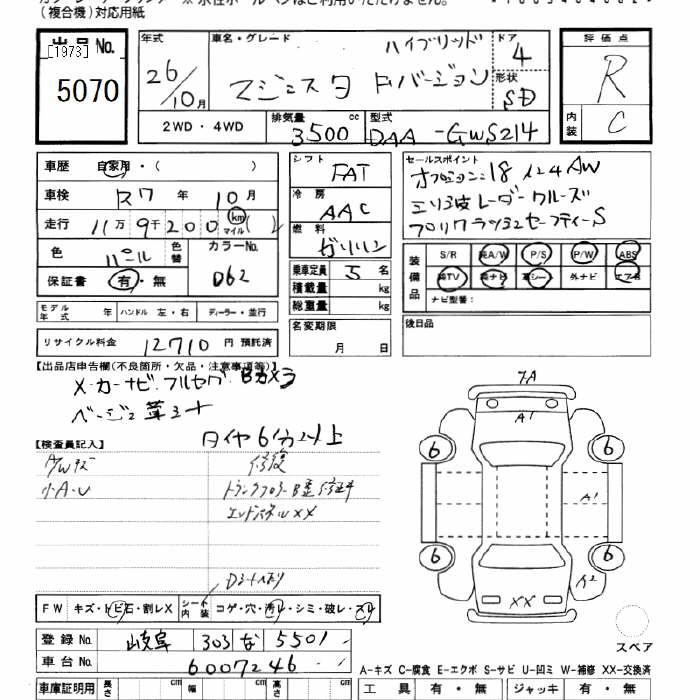 (複合機)対応用紙
出品 No.
[1973]
5070
年式 26/10月
車名・グレード ハイブリッド
マジェスタ Fバージョン
ドア 4
形状 SD
評価点
R
内装 C
2WD・4WD
排気量 3500 cc
型式 DAA-GWS214
車歴 自家用・( )
車検 R7 年 10月
走行 11万9千200 km マイル ( )
色 パール 色替
カラーNo. 062
保証書 有・無
シフト FAT
冷房 AAC
燃料 ガソリン
乗車定員 5 名
積載量 kg
総重量 kg
名変期限 月 日
セールスポイント
オプション18インチAW
ミリ波レーダークルーズ
プリクラッシュセーフティーS
装備品
S/R 純A/W P/S P/W ABS
純TV 純ナビ 革シート 外ナビ エアB
ナビ型番:
後日品
モデル年式 年 ハンドル 左・右 ディーラー・並行
リサイクル料金 12710 円 預託済
【出品店申告欄(不良箇所・欠品・注意事項等)】
メーカーナビ.フルセグ Bカメラ
ベージュ革シート
タイヤ6分山上
【検査員記入】
A/Wキズ
小A・U
修復
トランクフロアーB歪修正キ
エンドパネルXX
Dシートヘタリ
FW キズ・トビ石・割レX
シート内装 コゲ・穴・汚レ・シミ・破レ・スレ
登録 No. 岐阜 303 な 5501
車台 No. 6007246
車庫証明用 長さ cm 幅 cm 高さ cm
7A
A1
6
6
A1
6
6
A2
XX
スペア
A-キズ C-腐食 E-エクボ S-サビ U-凹ミ W-補修 XX-交換済
工具 有・無 ジャッキ 有・無